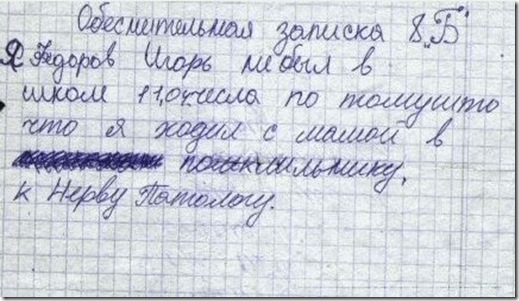 Обеснительная записка 8 "Б"
Я Федоров Игорь небыл в
школ 11,04числа по томушто
что я ходил с мамой в
к Нерву Патологу.